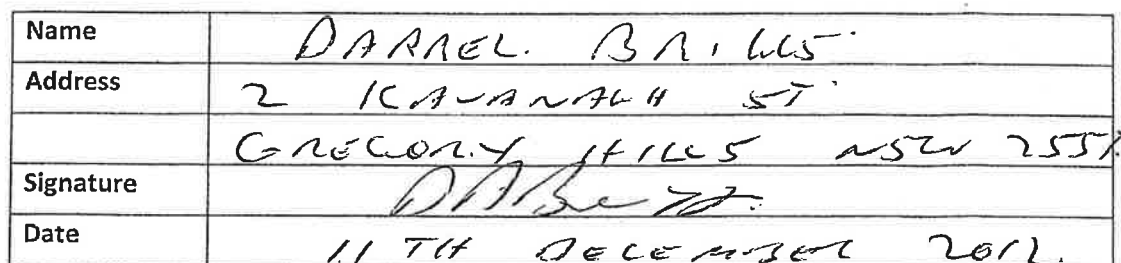 Name DARREL. BRILLS.
Address 2 KAVANAGH ST.
GREGORY HILLS NSW 2557.
Signature
Date 11 TH DECEMBER 2012.